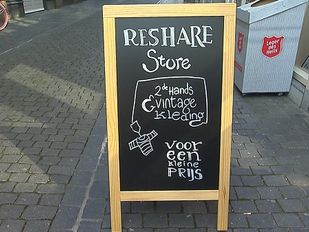 RESHARE
Store
2de Hands
& vintage
kleding
voor
een
kleine
PRIJS
Leger
des
Heils